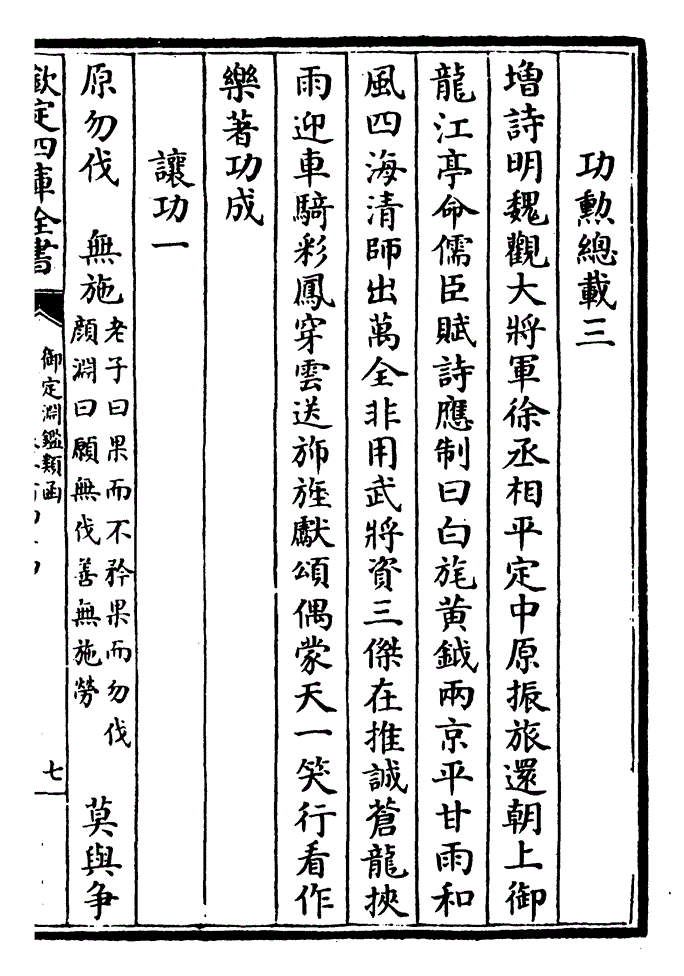 功勲總載三
増詩明魏觀大將軍徐丞相平定中原振旅還朝上御
龍江亭命儒臣賦詩應制曰白旄黄鉞兩京平甘雨和
風四海清師出萬全非用武將資三傑在推誠蒼龍挾
雨迎車騎彩鳳穿雲送斾旌獻頌偶蒙天一笑行看作
樂著功成
讓功一
原勿伐 無施
老子曰果而不矜果而勿伐
顔淵曰願無伐善無施勞
莫與争
欽定四庫全書
御定淵鑑類函
七